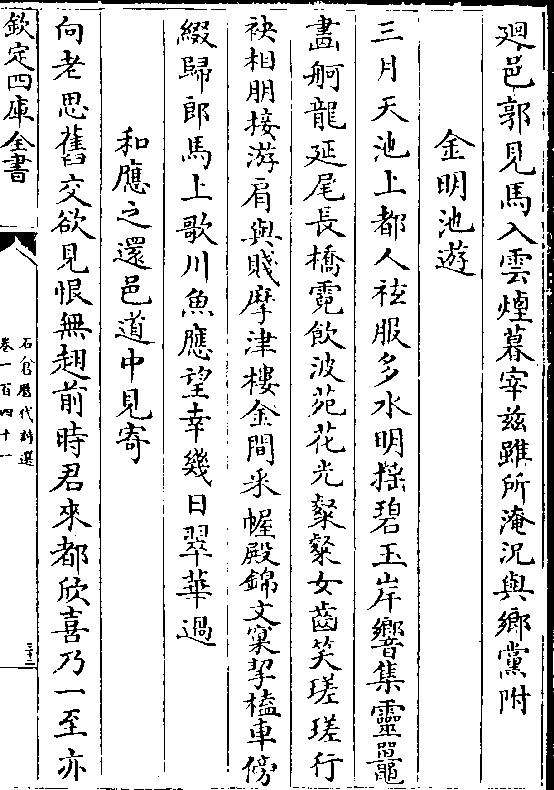 廻邑郭見馬入雲煙暮宰兹雖所淹況與鄉黨附
金明池遊
三月天池上都人袨服多水明搖碧玉岸響集靈鼉
畫舸龍延尾長橋霓飲波苑花光粲粲女齒笑瑳瑳行
袂相朋接游肩與賤摩津樓金間采幄殿錦文窠挈榼車傍
綴歸郎馬上歌川魚應望幸幾日翠華過
和應之還邑道中見寄
向老思舊交欲見恨無趐前時君來都欣喜乃一至亦
欽定四庫全書
石倉歷代詩選
卷一百四十一
三十二